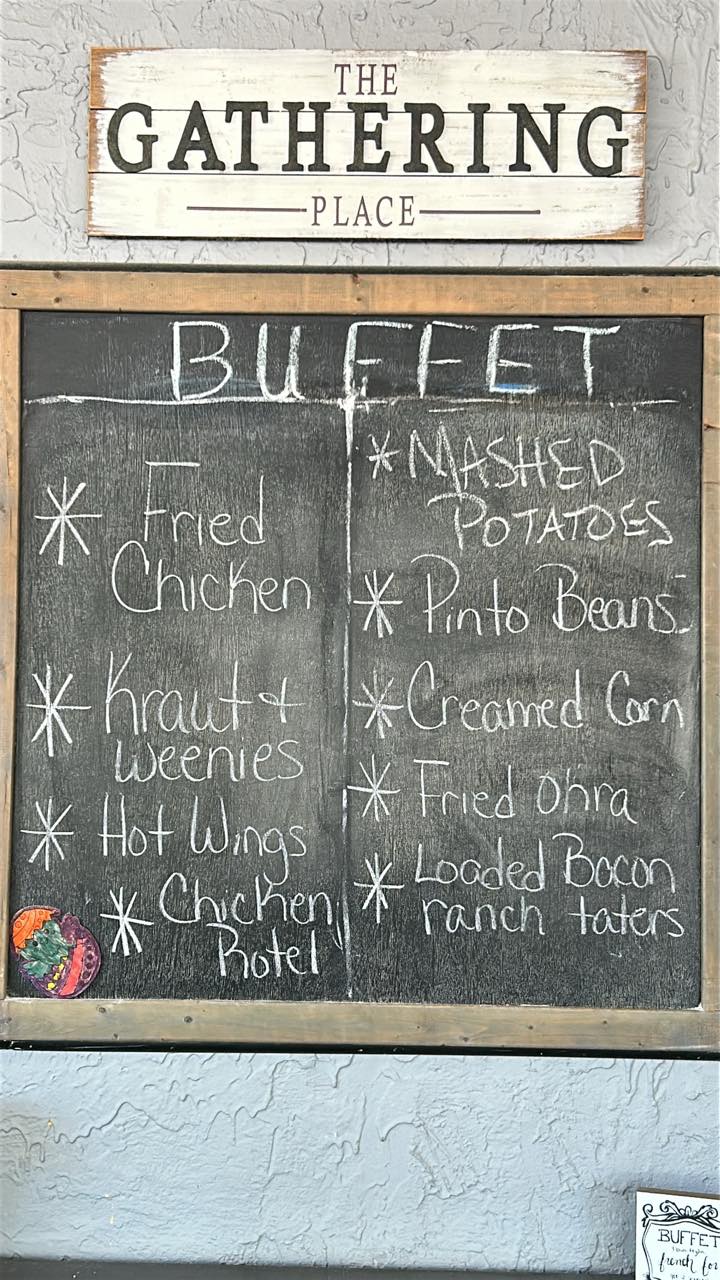 THE
GATHERING
PLACE
BUFFET
* Fried
Chicken
* Kraut &
weenies
* Hot Wings
* Chicken
Rotel
* MASHED
POTATOES
* Pinto Beans
* Creamed Corn
* Fried Okra
* Loaded Bacon
ranch taters
BUFFET
french for